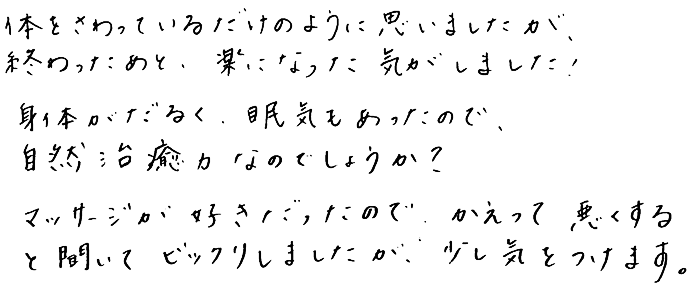 体をさわっているだけのように思いましたが、
終わったあと、楽になった気がしました!
身体がだるく、眠気もあったので、
自然治癒力なのでしょうか?
マッサージが好きだったので、かえって悪くする
と聞いてビックリしましたが、少し気をつけます。